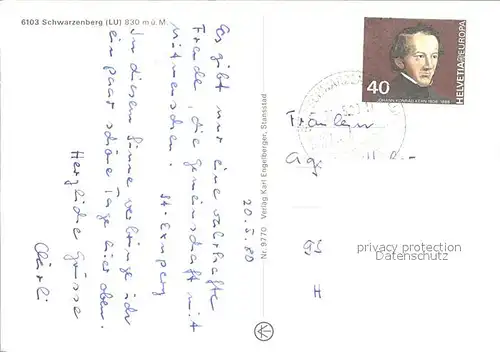 6103 Schwarzenberg (LU) 830 m ü. M.
Es gibt nur eine wahrhafte
Freude, die Gemeinschaft mit
Mitmenschen. St. Exupery
In diesem Sinne verbringe ich
ein paar schöne Tage hier oben.
Herzliche Grüsse
20.5.80
Nr. 9770 Verlag Karl Engelberger, Stansstad
40
JOHANN KONRAD KERN 1808-1888
HELVETIA EUROPA
Fräulein
privacy protection
Datenschutz